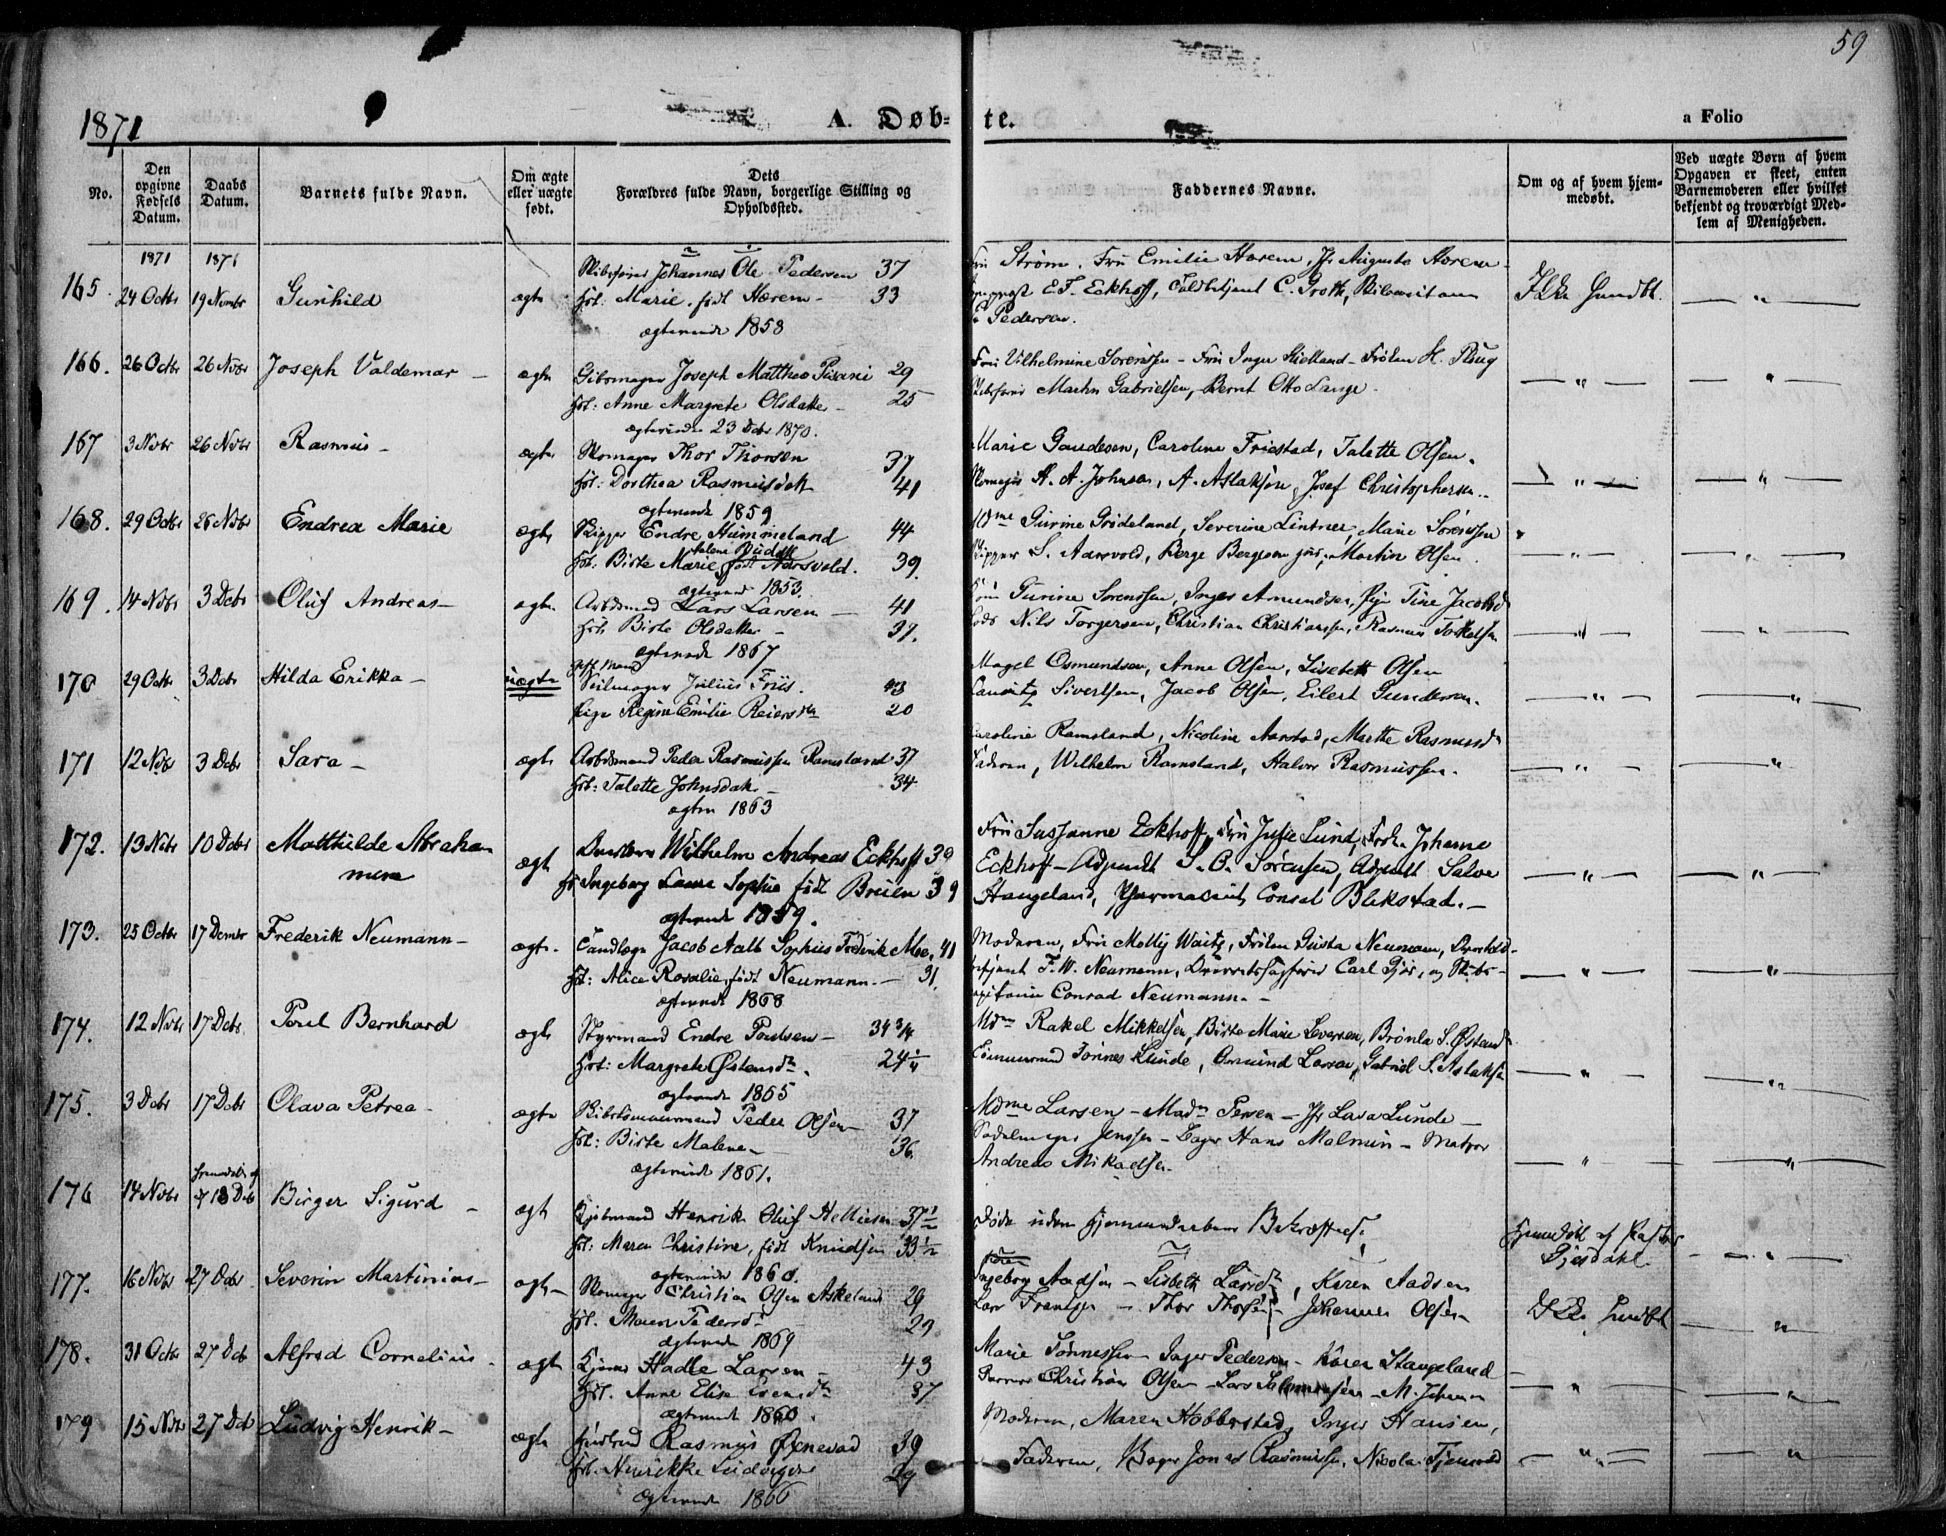 59
1871
A. Døb-
te.
a Folio
No.
Den
opgivne
Fødsels
Datum.
Daabs
Datum.
Barnets fulde Navn.
Om ægte
eller uægte
født.
Dets
Forældres fulde Navn, borgerlige Stilling og
Opholdssted.
Faddernes Navne.
Om og af hvem hjem-
medøbt.
Ved uægte Børn af hvem
Opgaven er skeet, enten
Barnemoderen eller hvilket
bekjendt og troværdigt Med-
lem af Menigheden.
1871 1871
165. 24 Octbr 19 Novbr Gunhild ægte
Skibsfører Johannes Ole Pedersen 37
Hst. Marie, født Hærem 33
ægteviede 1858
Fru Strøm, Fru Emilie Harem, Jfr Augusta Harem
E. T. Eckhoff, Toldbetjent C. Groth,
Pedersen.
Ikke hundbt.
166. 26 Octbr 26 Nvbr Joseph Valdemar ægte
Gibsmager Joseph Mattheo Pisani 29
Hst: Anne Margrete Olsdatter 25
ægteviede 23 Dcbr 1870.
Fru Vilhelmine Sørenssen - Fru Inger Kielland - Frøken H. Ploug
Skibsfører Martin Gabrielsen, Bernt Otto Lange.
167 3 Nvbr 26 Nvbr Rasmus ægte
Skomager Thor Thorsen 37
Hst: Dorthea Rasmusdatt 41
ægteviede 1859
Marie Gaudesen, Caroline Friestad, Talette Olsen.
A. A. Johnsen, A. Aslaksen, Josef Christophersen.
168. 29 Octbr 26 Nvbr Endrea Marie ægte
Skipper Endre Hummeland 44
Hst. Birte Marie født Aarsvold. 39.
ægteviede 1853.
Mdme Gurine Grødeland, Severine Lintner, Marie Sørenssen
Skipper S. Aarsvold, Berge Bergesen, Martin Olsen
169. 14 Nvbr 3 Dcbr Oluf Andreas ægte
Arbdsmand Lars Larsen 41
Hst. Birte Olsdatter 37.
ægteviede 1867
Gurine Sørenssen, Inger Amundsen, Pige Tine Jacobsd
Lods Nils Torgersen, Christian Christianssen, Rasmus Torkelsen
170 29 Octbr 3 Dcbr Hilda Erikka uægte
Gift Mand
Seilmager Julius Friis. 43
Pige Regine Emilie Reiersdtr 20
Magel Osmundsen, Anne Olsen, Lisebeth Olsen
Lauritz Sivertsen, Jacob Olsen, Eilert Gundersen.
171 12 Nvbr 3 Dcbr Sara ægte
Arbdsmand Peder Rasmussen Ramsland 37
Hst: Talette Johnsdatt 34
ægtev 1863
Caroline Ramsland, Nicoline Aarstad, Marthe Rasmusd
Faderen, Wilhelm Ramsland, Halvor Rasmussen.
172. 13 Nvbr 10 Dcbr Matthilde Abraham
mine ægte
Wilhelm Andreas Eckhoff 39
Fr Ingeborg Laura Sophie født Bruun 39
ægteviede 1859.
Fru Susanne Eckhoff, Fru Julie Lund, Frøk. Johanne
Eckhoff - Adjunct S. O. Sørensen, Adjunct Salve
Haugeland, Pharmaceut, Consul Blekstad.
173. 25 Octbr 17 Dcmbr Frederik Neumann ægte
Tandlæge Jacob Aall Sophus Frederik Moe, 41
Hst: Alice Rosalie, født Neumann. 31.
ægteviede 1868
Moderen, Fru Molly Waitz, Frøken Gusta Neumann, Overtold-
betjent F. W. Neumann, Overretssagfører Carl Gjør, og Skibs-
capitaine Conrad Neumann.
174. 12 Nvbr 17 Dcbr Poul Bernhard ægte
Styrmand Endre Poulsen 34 3/4
Hst: Margrete Østensdtr. 24 1/4
ægteviede 1865
Mdm Rakel Mikkelsen, Birte Marie Seversen, Brønla S. Østensd
Tømmermand Tønnes Lunde, Omund Larsen, Gabriel S. Aslaksen
175. 3 Dcbr 17 Dcbr Olava Petrea ægte
Skibstømmermand Peder Olsen 37
Hst: Birte Malene 36.
ægteviede 1861.
Mdme Larsen - Madm Persen - Jfr Lava Lunde
Sadelmager Jenssen - Bager Hans Malmin - Matros
Andreas Mikaelsen.
176 14 Nvbr 18 Dcbr Birger Sigurd ægte
Kjøbmand Henrik Oluf Helliesen 37 1/2
Hst: Maren Christine, født Knudsen 33 1/2
ægteviede 1860.
Døde uden Hjemmedaabens Bekræftelse.
Hjemdøbt af Pastor
Gjesdahl.
177. 16 Nvbr 27 Dcbr Severin Martinius ægte
Skomager Christian Olsen Askeland 29
Hst. Maren Pedersd 29
ægteviede 1869
Ingeborg Aadsen - Lisbeth Larsdtr, Karen Aadsen
Lars Frantzen - Thor Thorsen - Johannes Olsen
Ikke hundbt
178. 31 Octbr 27 Dcb Alfred Cornelius ægte
Hadle Larsen 43
Hst. Anne Elise Evensdtr 37
ægteviede 1860.
Marie Tønnessen - Inger Pedersen - Karen Stangeland
Christian Olsen - Lars - M. Johnsen
179 15 Nvbr 27 Dcbr Ludvig Henrik ægte
Rasmus Øgnevad 39
Hst. Henrikke Ludvigsen 29
ægteviede 1866
Moderen, Maren Hobberstad, Inger Hansen,
Faderen, Bager Jonas Rasmussen, Nicolai